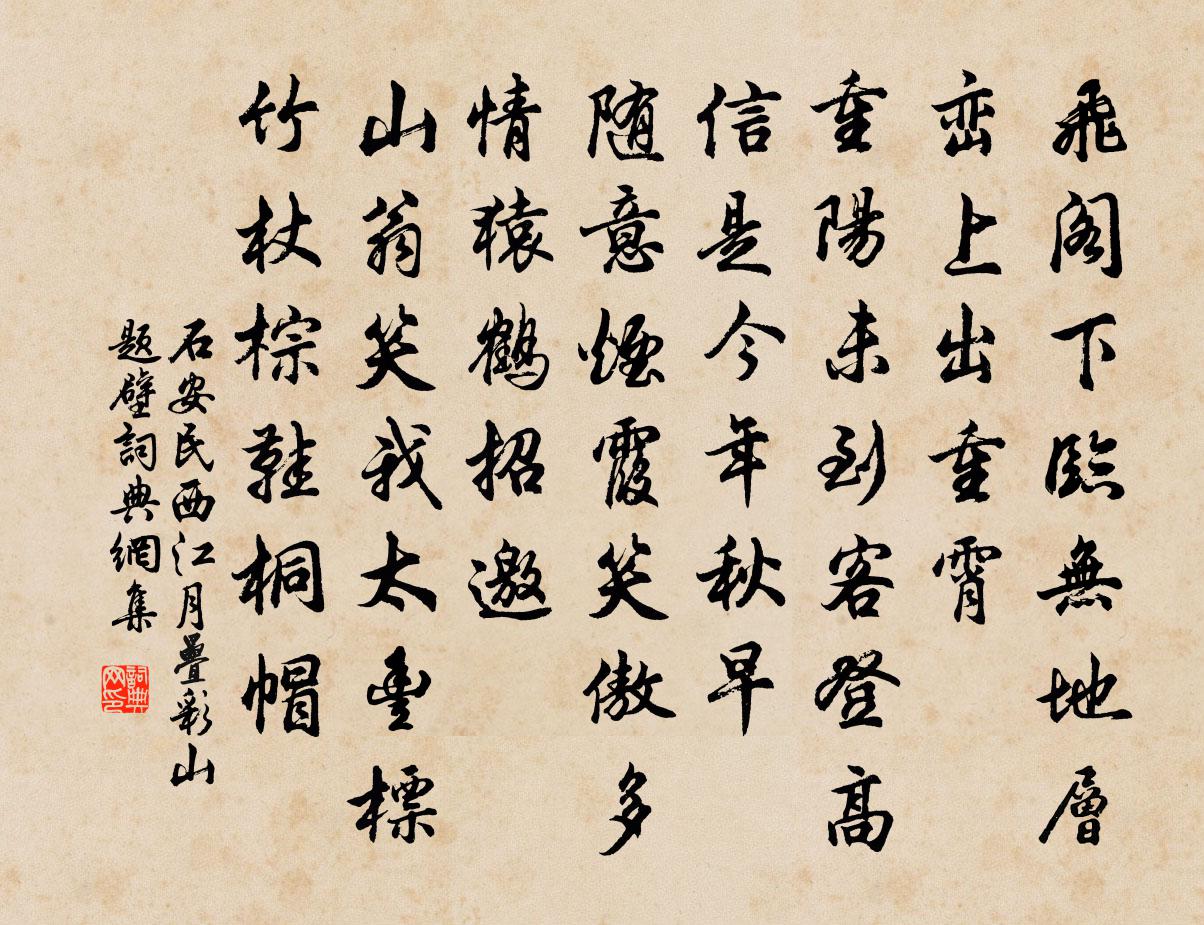 飛閣下臨無地層
巒上出重霄
重陽未到客登高
信是今年秋早
随意煙霞笑傲多
情猿鶴招邀
山翁笑我太豊標
竹杖棕鞋桐帽
石安民西江月疊彩山
题壁詞典網集
詞典
网印